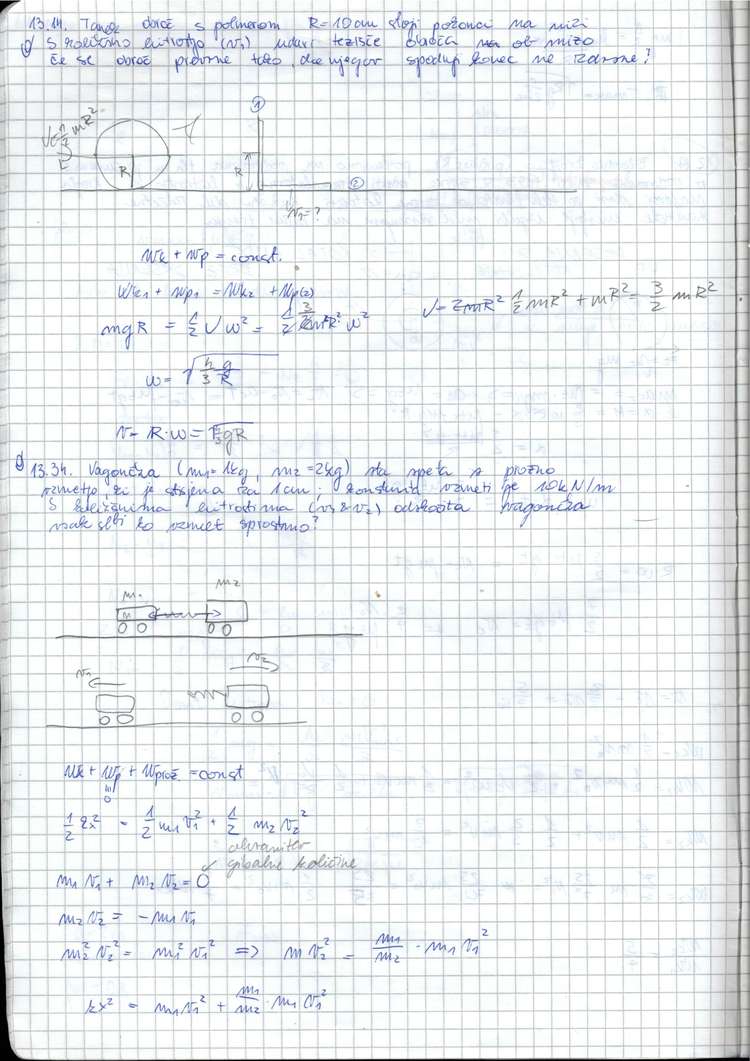 13.14. Tanek obroč s polmerom R=10cm stoji pokonci na mizi
S kolikšno hitrostjo (v1) udari težišče obroča ob mizo
če se obroč prevrne tako, da njegov spodnji konec ne zdrsne?
J=1/2 mR²
R
R
①
②
v1=?
Wk + Wp = const.
Wk1 + Wp1 = Wk2 + Wp(2)
mgR = 1/2 J ω² = 1/2 3/2 mR² ω²
J= 1/2 mR² + mR² = 3/2 mR²
ω= √(4/3 g/R)
v= R·ω = √(4/3 gR)
13.34. Vagončka (m1=1kg, m2=2kg) sta speta s prožno
vzmetjo, ki je stisnjena za 1cm; konstanta vzmeti je 10kN/m
S kolikšnima hitrostima (v1 & v2) odskočita vagončka
vsak sebi ko vzmet sprostimo?
m1
m2
v1
v2
Wk + Wp + Wprož = const
0
1/2 kx² = 1/2 m1 v1² + 1/2 m2 v2²
ohranitev
gibalne količine
m1 v1 + m2 v2 = 0
m2 v2 = - m1 v1
m2² v2² = m1² v1² => m v2² = m1/m2 · m1 v1²
kx² = m1 v1² + m1/m2 · m1 v1²